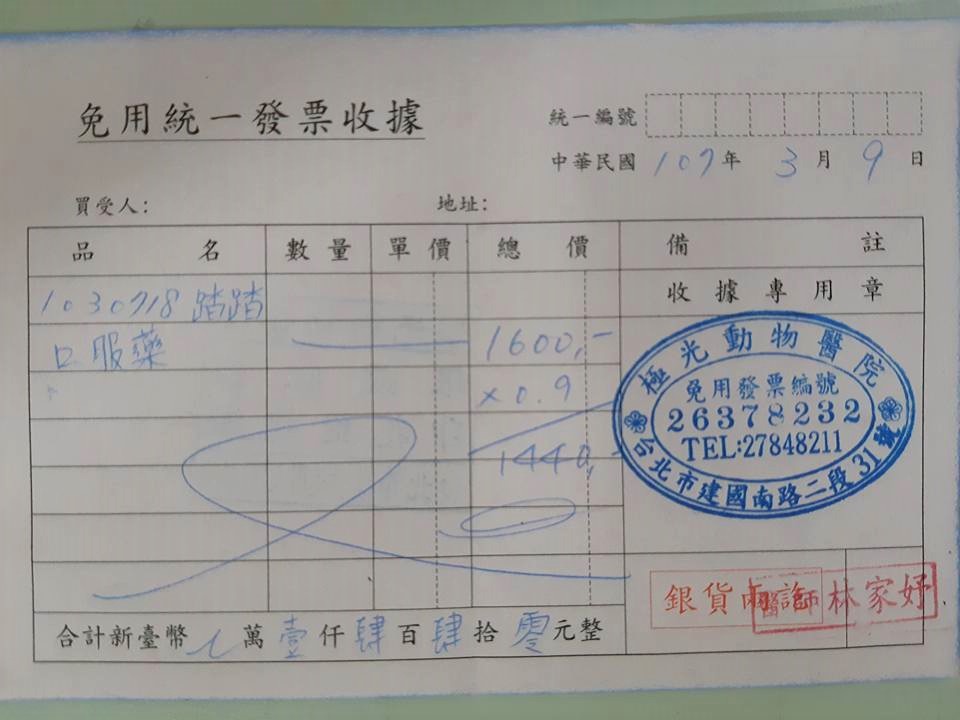 免用統一發票收據
統一編號
中華民國 107年 3月 9日
買受人： 地址：
品名 數量 單價 總價 備註
收據專用章
1030718 踏踏
口服藥 1600,-
×0.9
1440,
極光動物醫院
免用發票編號
26378232
TEL:27848211
台北市建國南路二段31號
銀貨兩訖
醫師林家妤
合計新臺幣 萬壹仟肆百肆拾零元整